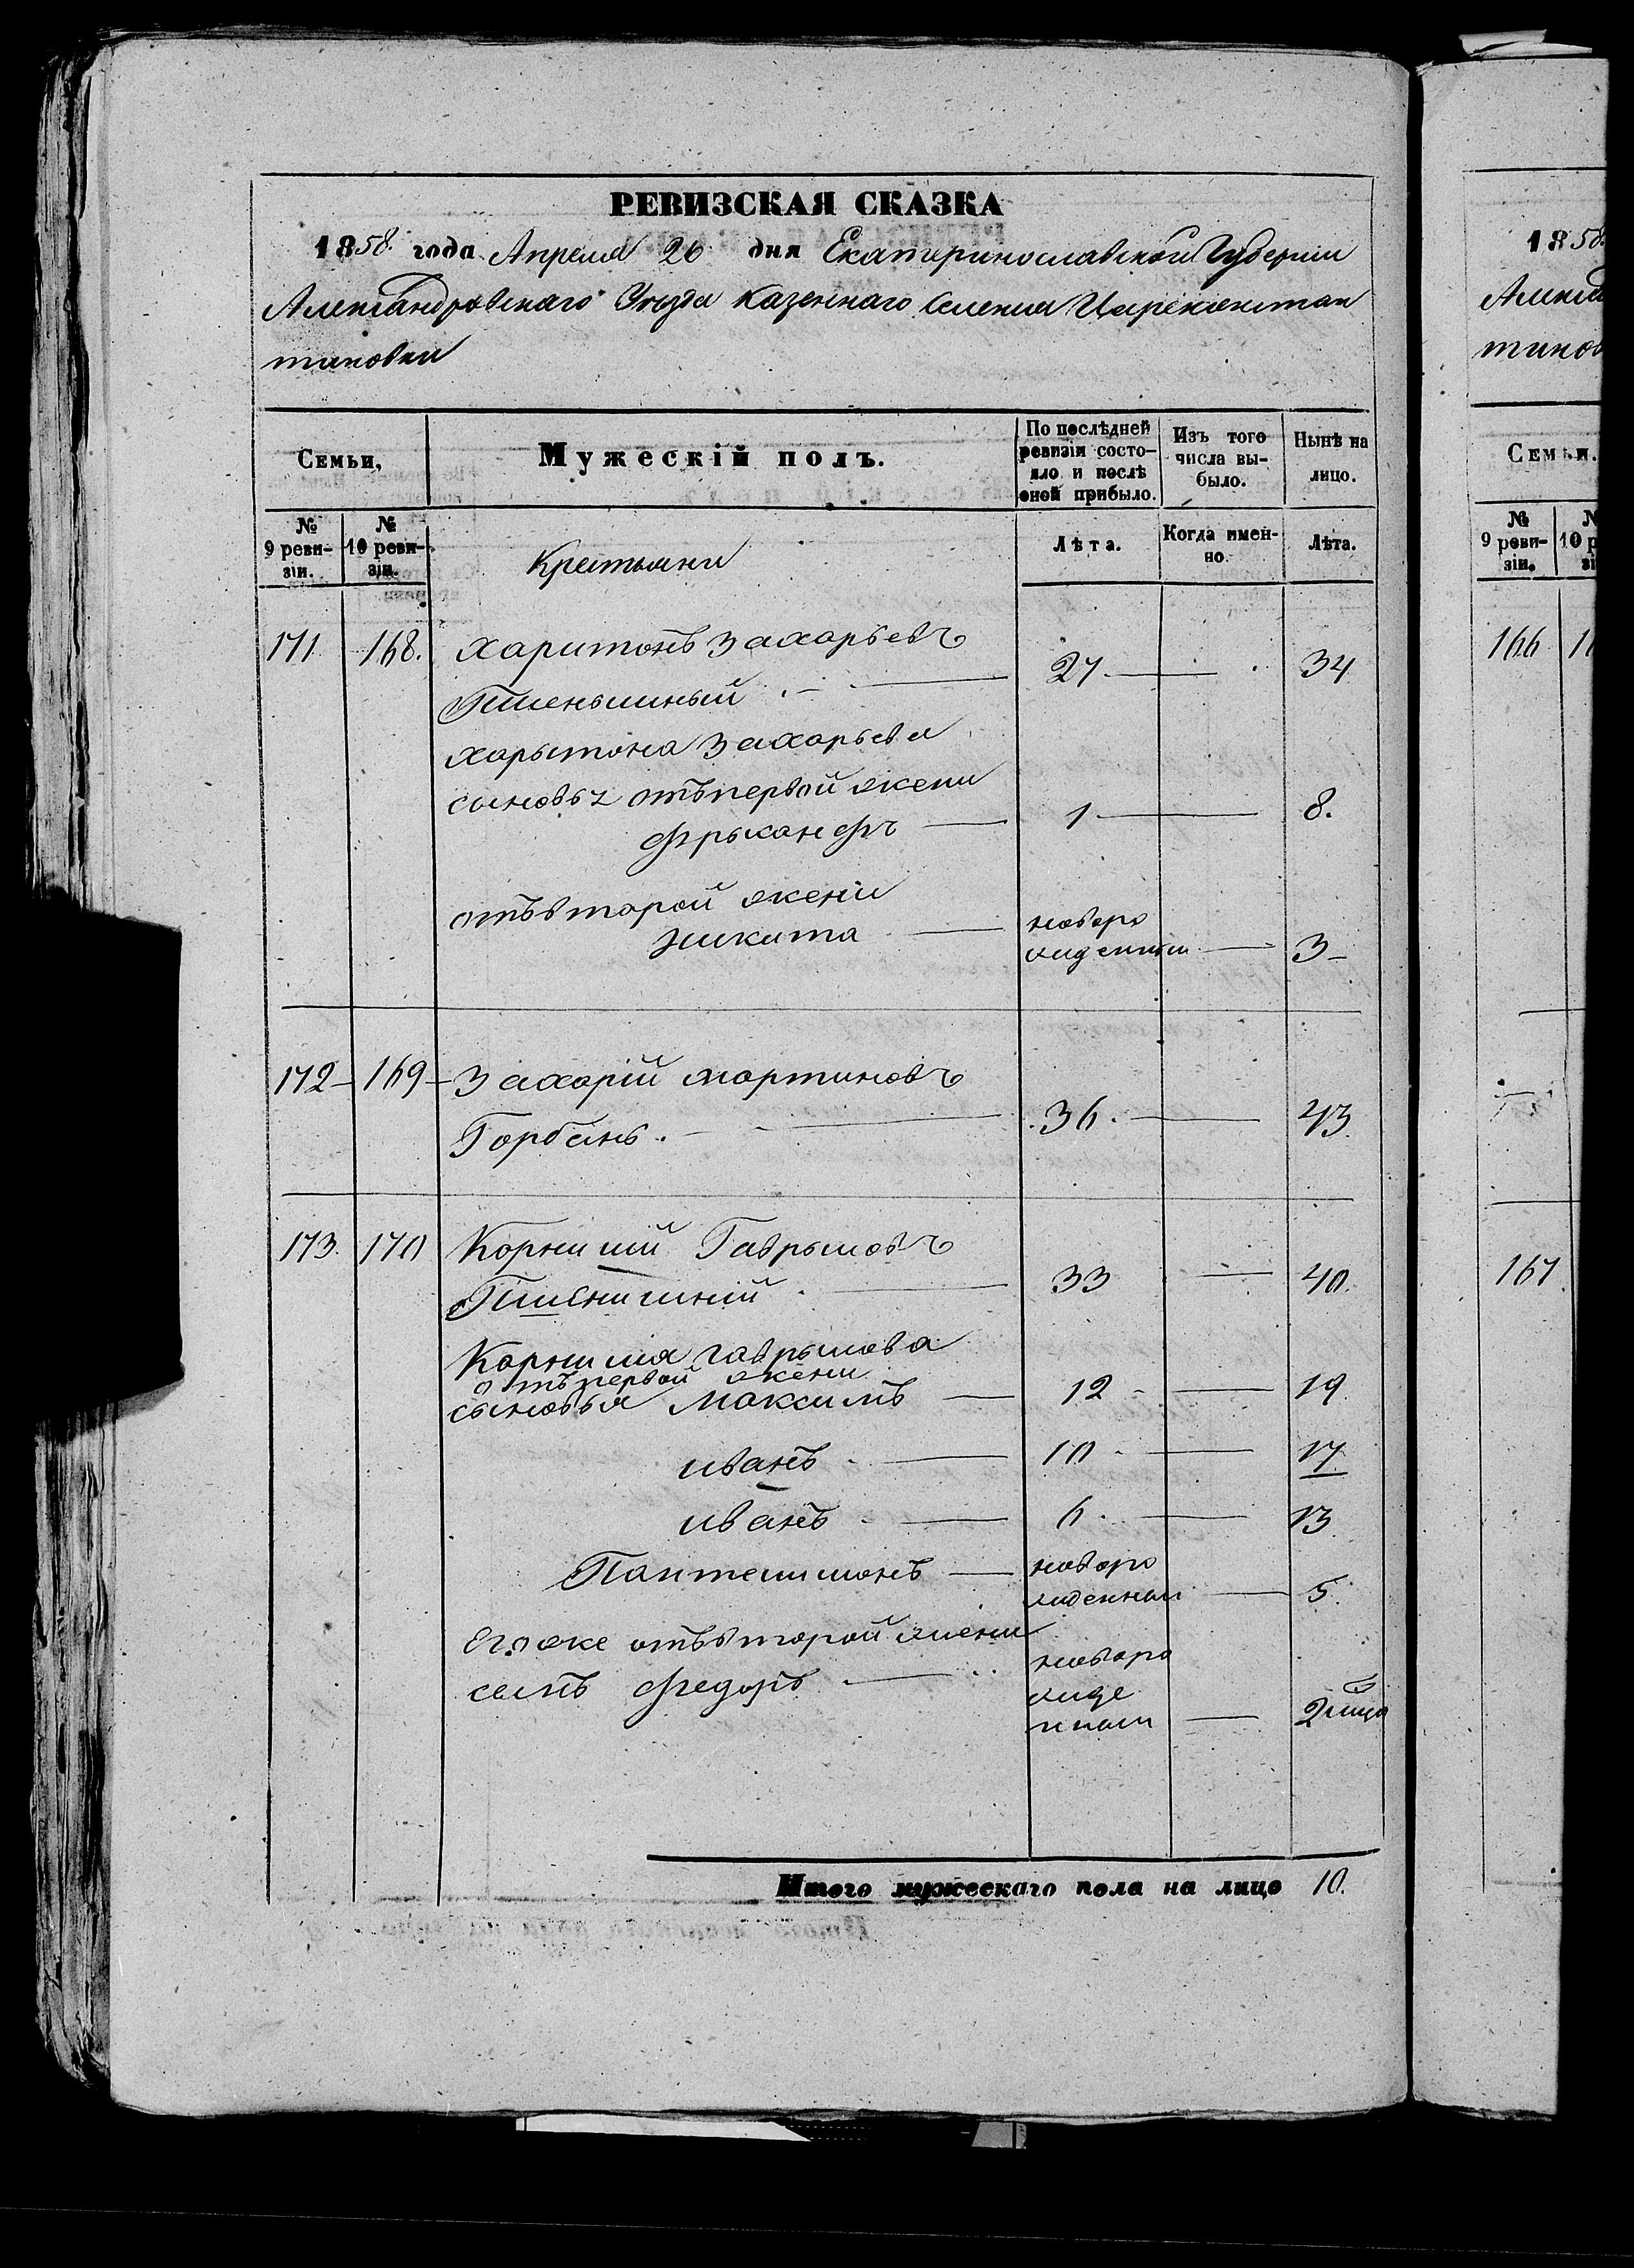 РЕВИЗСКАЯ СКАЗКА
1858 года Апреля 26 дня Екатеринославской Губернии
Александровскаго Уезда казеннаго Селения Цареконстан
тиновки
Семьи,
Мужескій полъ.
По послѣдней ревизіи состо-яло и послѣ оной прибыло.
Изъ того числа вы-было.
Нынѣ на лицо.
№ 9 реви-зіи.
№ 10 реви-зіи.
Крестьяни
Лѣта.
Когда имен-но.
Лѣта.
171 168. Харитонъ Захарьевъ
Пшеньшный 27 34
Харытона Захарьева
сыновьz отъ первой жени
1 8.
отъ второй жени
Никита новоро 3
жиденный
172 169 Захарій Мартиновъ
Горбань. 36. 43.
173. 170 Корнилій Гаврыловъ
Пшеничній 33 40.
Корнилія Гаврылова
отъ первой жени
сыновья Максимъ 12 19.
иванъ 10 17
иванъ 6 13.
Пантелимонъ новоро
жиденный 5.
Егоже отъ второй жени
сынъ Федоръ новоро
жиде
нный 2
Итого мужескаго пола на лицо 10.
1858
тинов
Семьи.
№ 9 реви-зіи.
166
167.